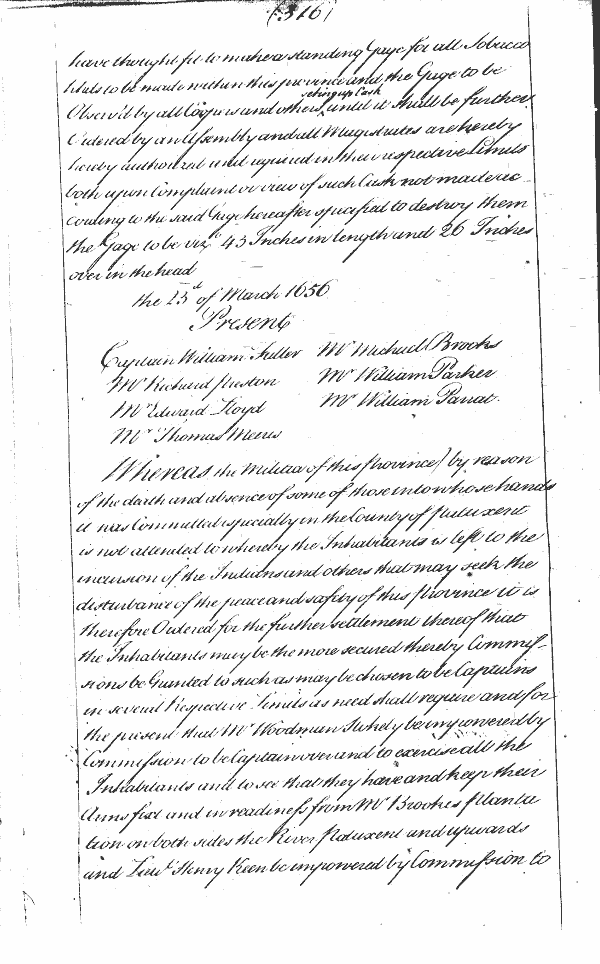 (316)
have thought fit to make a standing Gage for all Tobacco
hhds to be made within this province and the Gage to be
Observ'd by all Coopers and others seting up Cask until it shall be further
Ordered by an Assembly and all Magistrates are hereby
hereby authorized and required in their respective Limits
both upon Complaint or view of such Cask not made ac-
cording to the said Gage hereafter specified to destroy them
the Gage to be viz 43 Inches in length and 26 Inches
over in the head
the 23d of March 1656
Present
Captain William Fuller Mr Michael Brooks
Mr Richard Preston Mr William Parker
Mr Edward Lloyd Mr William Parrat
Mr Thomas Meeres
Whereas the Militia of this Province) by reason
of the death and absence of some of those into whose hands
it was Committed especially in the County of Patuxent
is not attended to whereby the Inhabitants is left to the
incursion of the Indians and others that may seek the
disturbance of the peace and safety of this province it is
therefore Ordered for the further settlement thereof that
the Inhabitants may be the more secured thereby Commis-
sions be Granted to such as may be chosen to be Captains
in several Respective Limits as need shall require and for
the present that Mr Woodman Stokely be impowered by
Commission to be Captain over and to exercise all the
Inhabitants and to see that they have and keep their
Arms fixt and in readiness from Mr Brookes planta
tion on both sides the River Patuxent and upwards
and Leiut Henry Keen be impowered by Commission to